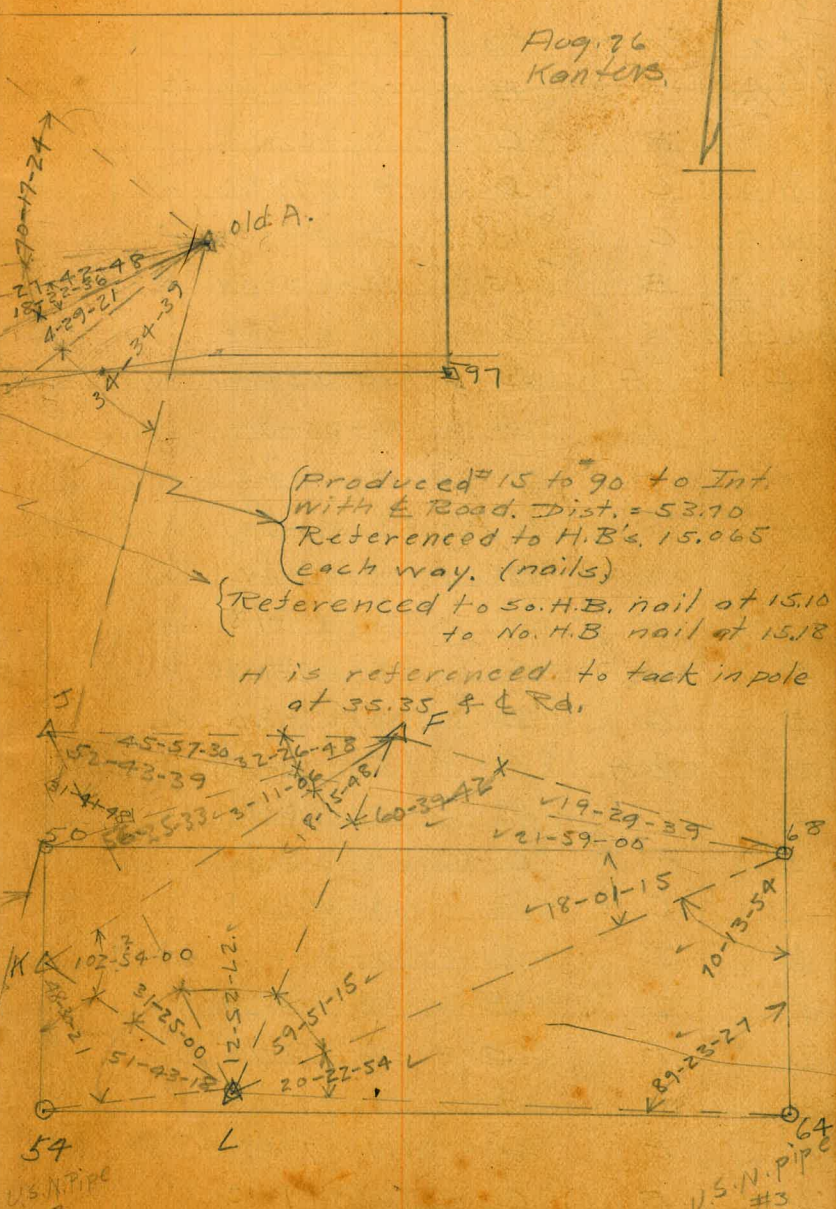 Aug. 26
Kanters.
old A.
70-17-24
27-42-48
18-22-36
4-29-21
34-34-39
97
Produced #15 to #90 to Int.
with ℄ Road. Dist. = 53.70
Referenced to H.B's. 15.065
each way. (nails)
Referenced to So. H.B. nail at 15.10
to No. H.B nail at 15.18
H is referenced to tack in pole
at 35.35 & ℄ Rd.
J
F
45-57-30
32-26-48
52-43-39
3-11-06
60-39-42
56-25-33
19-29-39
50
21-59-00
68
18-01-15
70-13-54
K
102-54-00
31-25-00
12-52-42
59-51-15
51-43-18
20-22-54
89-23-27
54
L
64
U.S.N. Pipe
U.S.N. pipe
#3